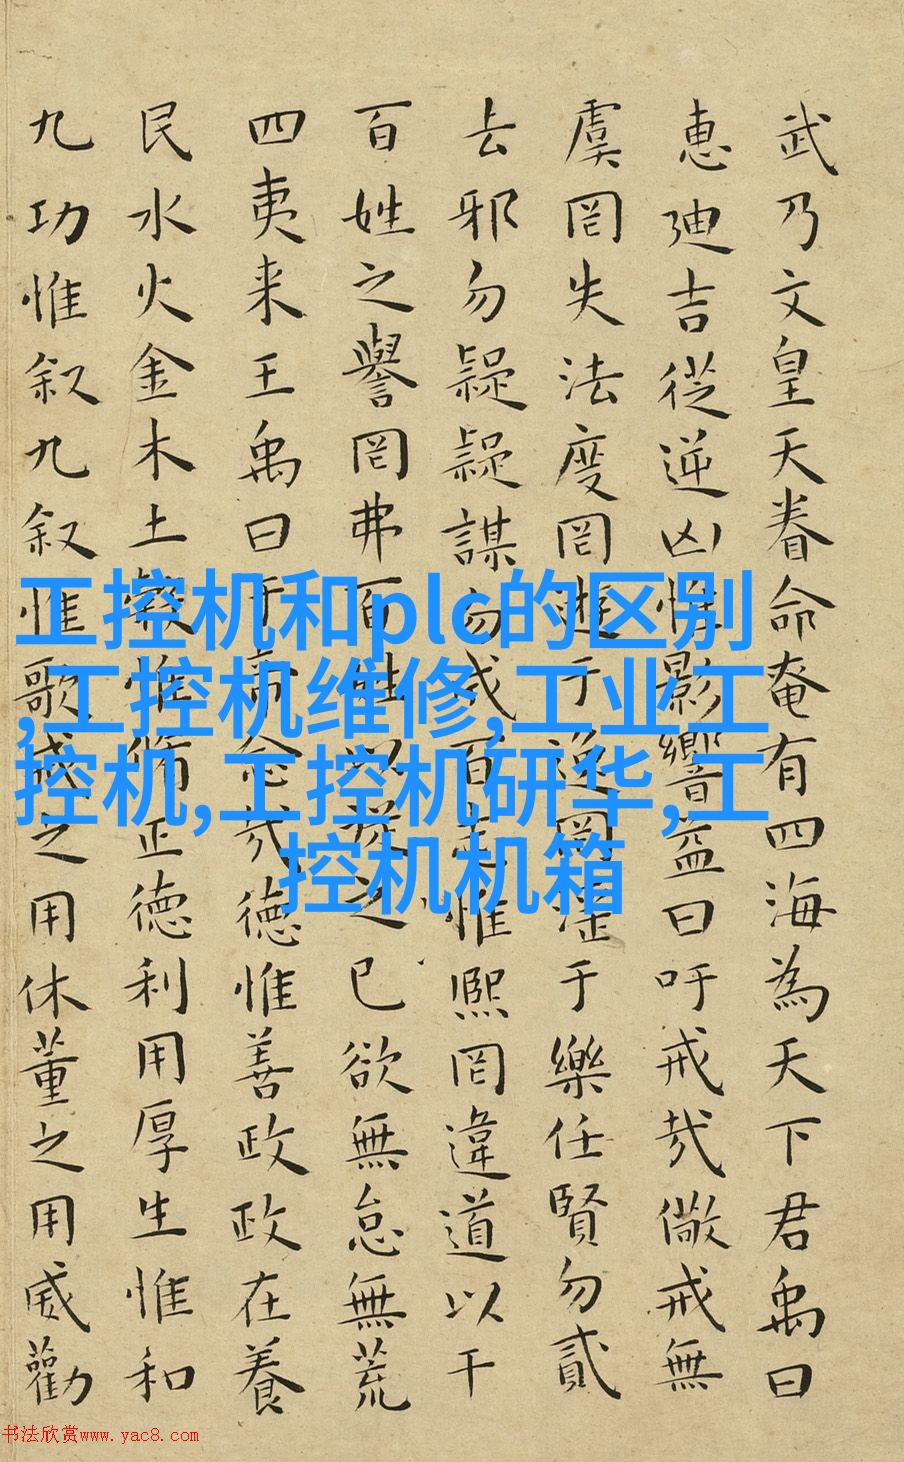 武乃文皇天眷命奄有四海為天下君禹曰
惠迪吉從逆凶惟影響益曰吁戒哉儆戒無
虞罔失法度罔遊于逸罔淫于樂任賢勿貳
去邪勿疑疑謀勿成百志惟熙罔違道以干
百姓之譽罔弗百姓以從之已欲無怠無荒
四夷来王禹曰于帝念哉德惟善政政在養
民水火金木土穀惟脩正德利用厚生惟和
九功惟叙九叙惟歌戒之用休董之用威勸
工控机和plc的区别
,工控机维修,工业工
控机,工控机研华,工
控机机箱
书法欣赏www.yac8.com